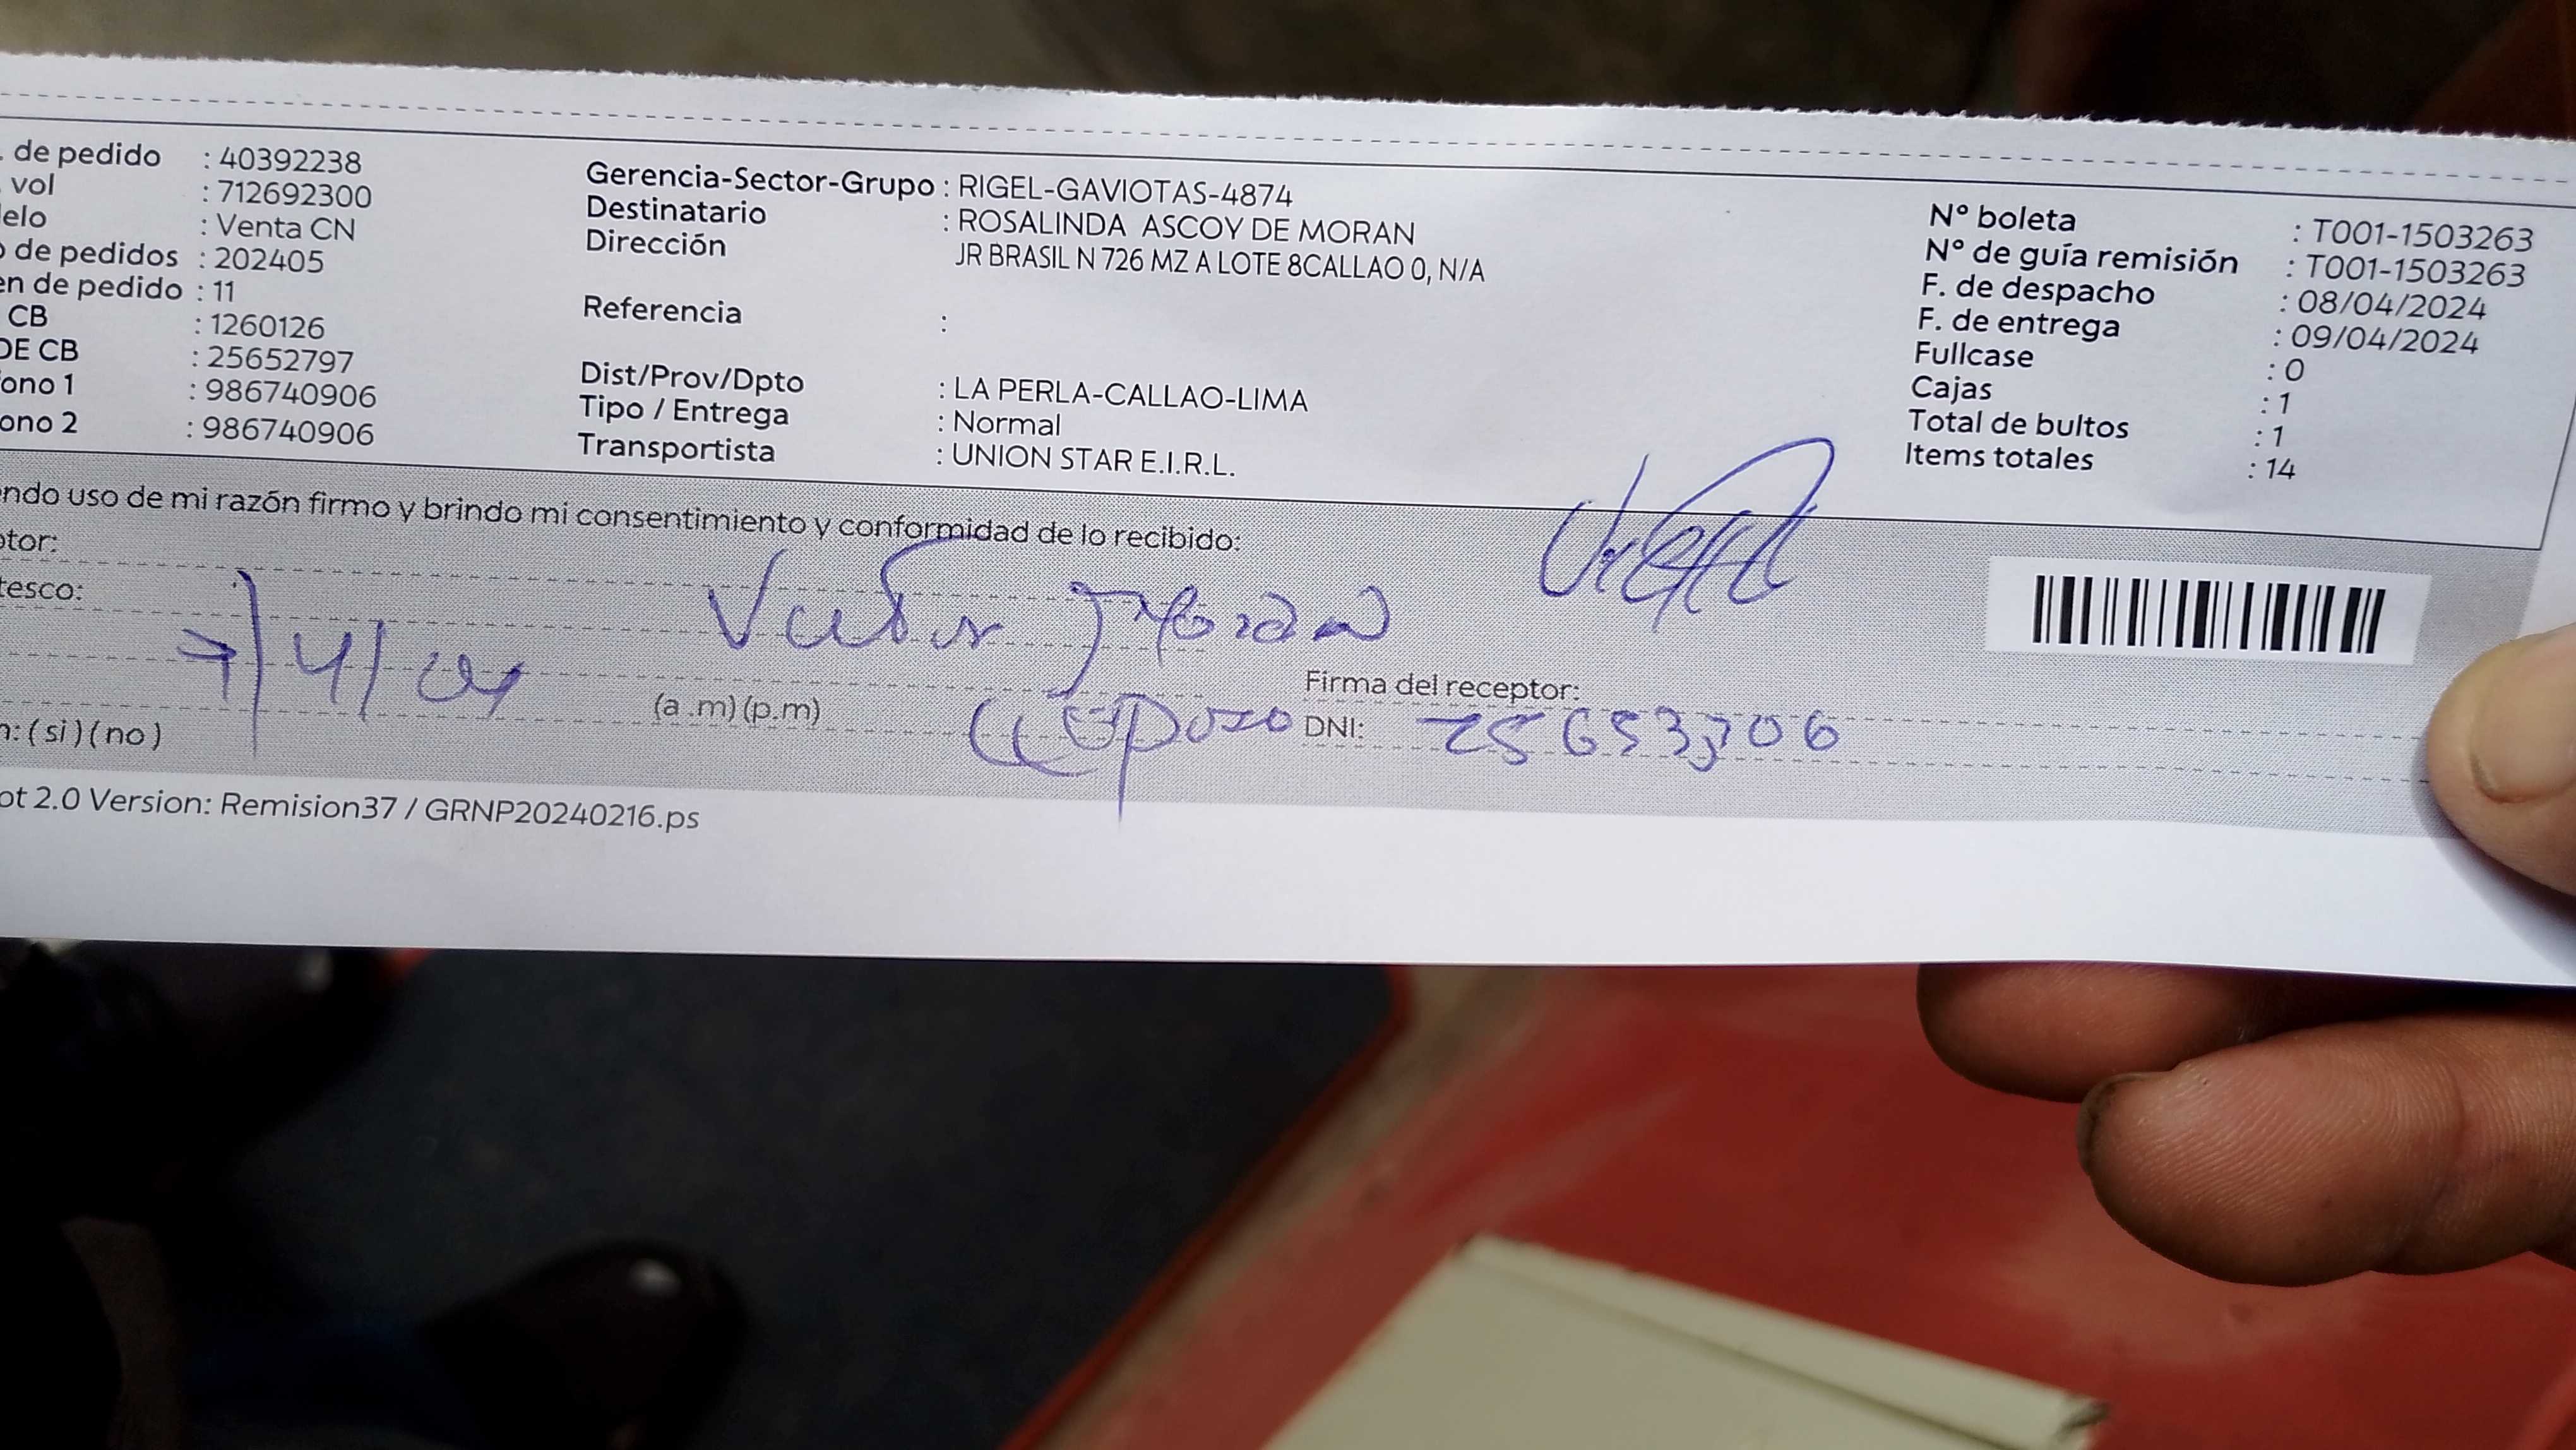 . de pedido : 40392238
vol : 712692300
elo : Venta CN
o de pedidos : 202405
en de pedido : 11
CB : 1260126
DE CB : 25652797
ono 1 : 986740906
ono 2 : 986740906
Gerencia-Sector-Grupo : RIGEL-GAVIOTAS-4874
Destinatario : ROSALINDA ASCOY DE MORAN
Dirección JR BRASIL N 726 MZ A LOTE 8CALLAO 0, N/A
Referencia :
Dist/Prov/Dpto : LA PERLA-CALLAO-LIMA
Tipo / Entrega : Normal
Transportista : UNION STAR E.I.R.L.
N° boleta : T001-1503263
N° de guía remisión : T001-1503263
F. de despacho : 08/04/2024
F. de entrega : 09/04/2024
Fullcase : 0
Cajas : 1
Total de bultos : 1
Items totales : 14
ndo uso de mi razón firmo y brindo mi consentimiento y conformidad de lo recibido:
otor:
tesco:
Moran
(a .m) (p.m)
Firma del receptor:
DNI:
n: ( si ) ( no )
ot 2.0 Version: Remision37 / GRNP20240216.ps